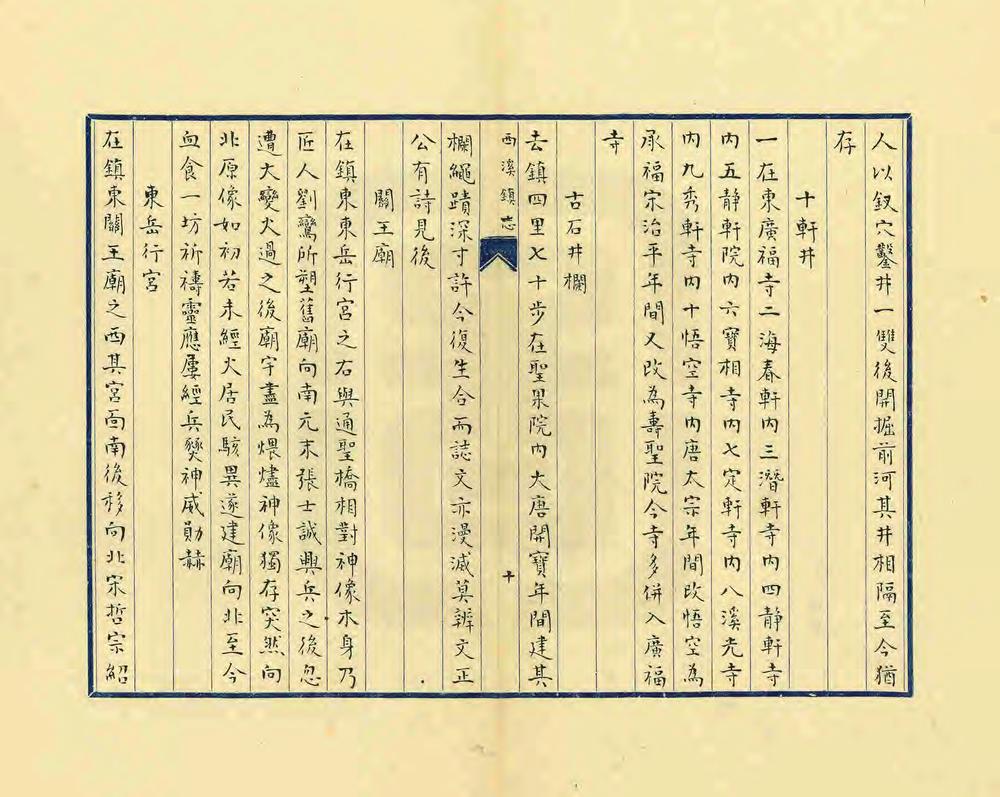 人以釵穴鑿井一雙後開掘前河其井相隔至今猶
存
十軒井
一在東廣福寺二海春軒內三潛軒寺內四靜軒寺
內五靜軒院內六寶相寺內七定軒寺內八溪光寺
內九秀軒寺內十悟空寺內唐太宗年間改悟空為
承福宋治平年間又改為壽聖院今寺多併入廣福
寺
古石井欄
去鎮四里七十步在聖果院內大唐開寶年間建其
西溪鎮志
十
欄繩蹟深寸許今復生合而誌文亦漫滅莫辨文正
公有詩見後
關王廟
在鎮東東岳行宮之右與通聖橋相對神像木身乃
匠人劉鸞所塑舊廟向南元末張士誠興兵之後忽
遭大變火過之後廟宇盡為煨燼神像獨存突然向
北原像如初若未經火居民駭異遂建廟向北至今
血食一坊祈禱靈應屢經兵燹神威勛赫
東岳行宮
在鎮東關王廟之西其宮面南後移向北宋哲宗紹